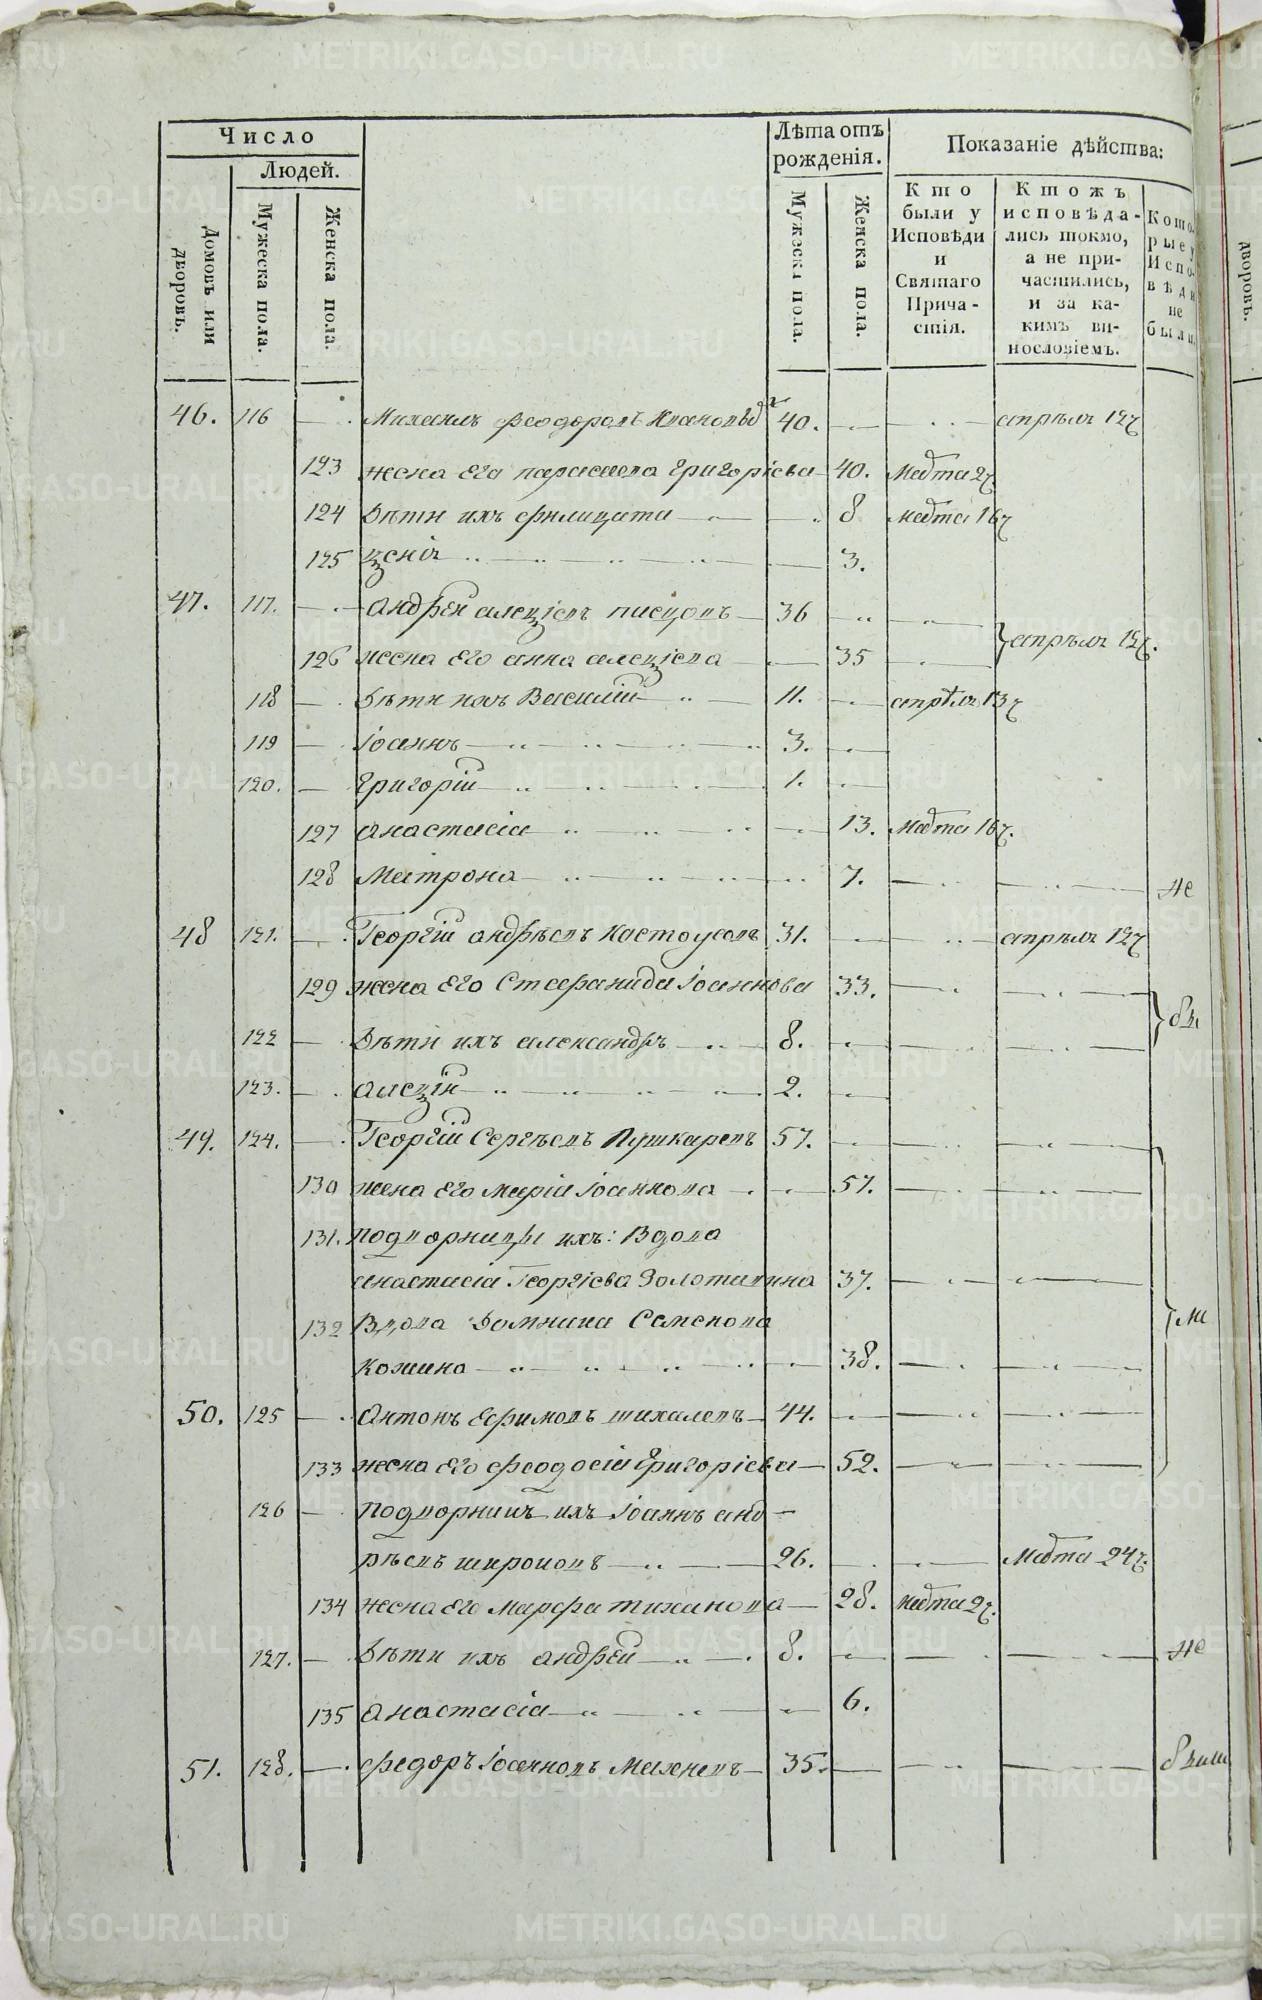 Число
Людей.
Домовъ или дворовъ.
Мужеска пола.
Женска пола.
Лѣта отъ рожденія.
Мужеска пола.
Женска пола.
Показаніе дѣйства:
Кто были у Исповѣди и Святаго Причастія.
Ктожъ исповѣдались токмо, а не причастились, и за какимъ винословіемъ.
Которые у Исповѣди не были
дворовъ.
46. 116 Михаилъ Феодоровъ 40. апрѣля 12
123 жена его параскева Григоріева 40. марта 2
124 дѣти ихъ филицата 8 марта 16
125 3.
47. 117. андрей алеѯіевъ писцовъ 36
апрѣля 12.
126 жена его анна алеѯіева 35
118 дѣти ихъ Василій 11. апрѣля 13
119 Іоаннъ 3.
120. Григорій 1.
127 анастасія 13. марта 16.
128 Матрона 7. не
48 121. Георгій андрѣевъ Костоусовъ 31. апрѣля 12
129 жена его Стефанида Іоаннова 33.
122 дѣти ихъ александръ 8.
123. алеѯій 2.
49. 124. Георгій Сергѣевъ Пушкаревъ 57.
130 жена его марія Іоаннова 57.
131. подворницы ихъ: Вдова
анастасія Георгіева Золотавина 37.
132 Вдова Домника Семенова
кожина 38.
50. 125 антонъ Ефимовъ михалевъ 44.
133 жена его феодосія Григоріева 52.
126 подворникъ ихъ Іоаннъ анд-
рѣевъ широковъ 26. марта 24.
134 жена его марфа тиханова 28. марта 2.
127. дѣти ихъ андрей 8. не
135 анастасія 6.
51. 128. федоръ Іоанновъ Махневъ 35. были
METRIKI.GASO-URAL.RU